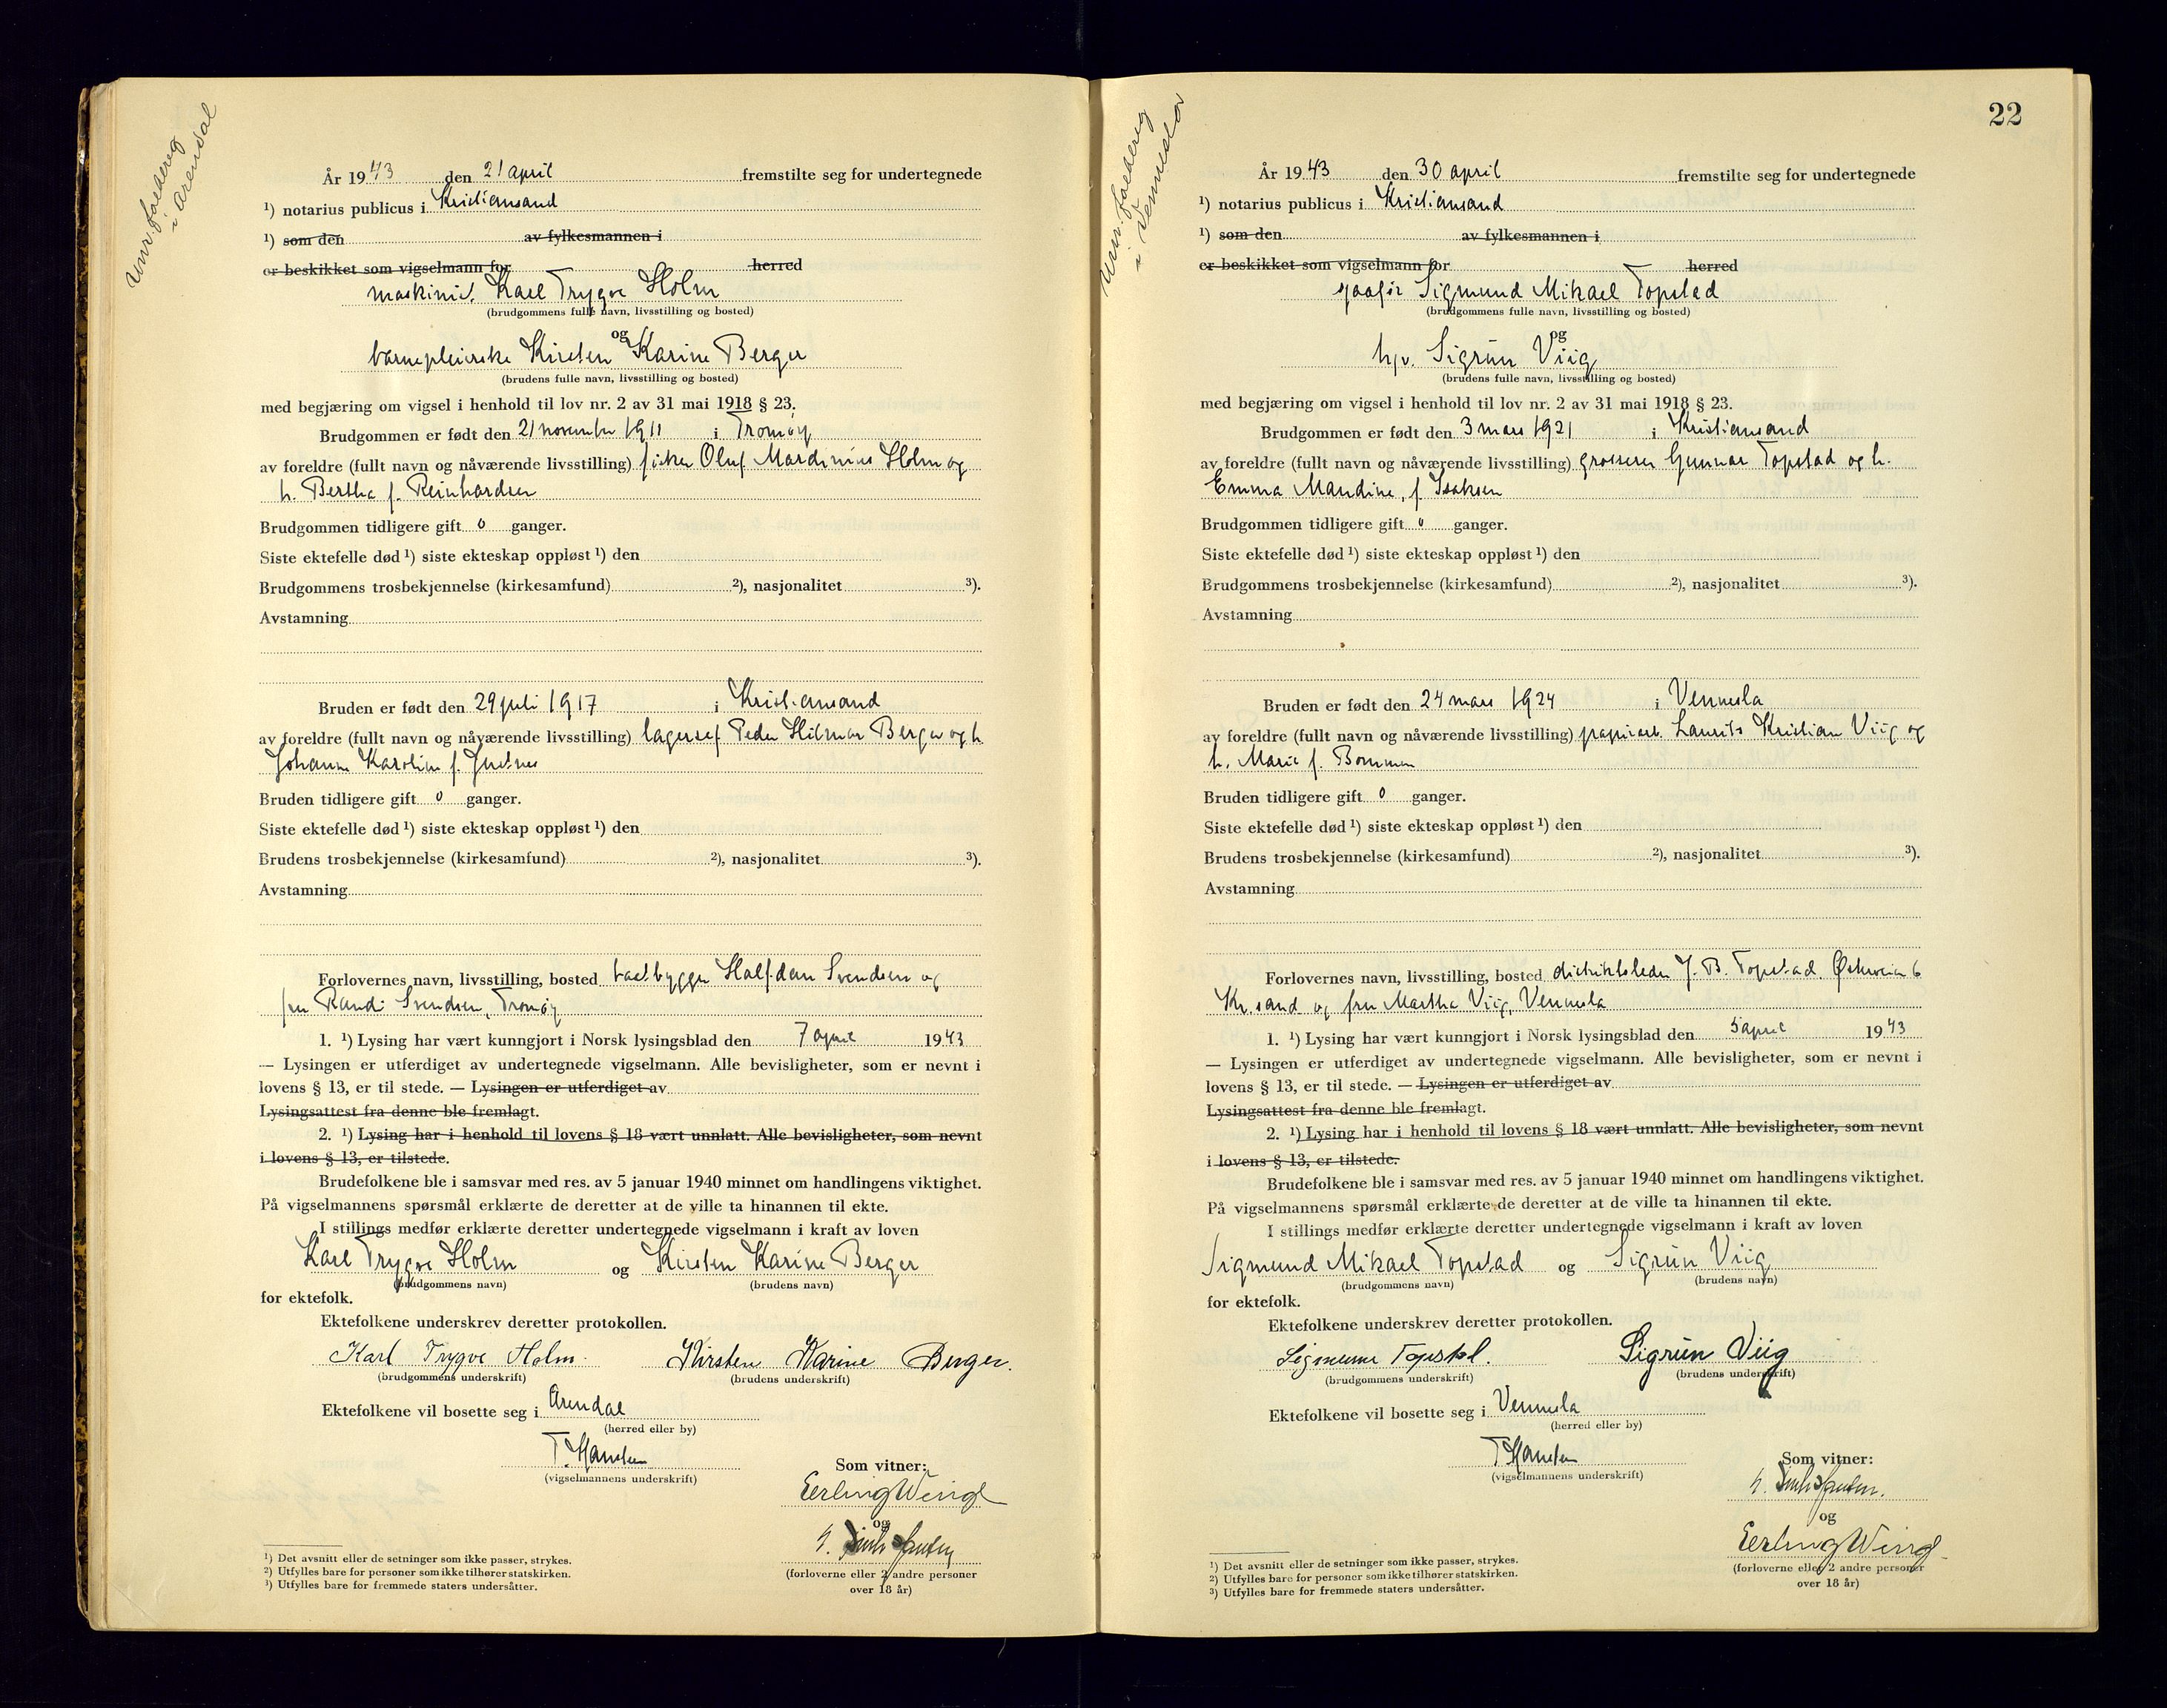 i Arendal
År 1943 den 21 april fremstilte seg for undertegnede
¹) notarius publicus i Kristiansand
¹) som den av fylkesmannen i
er beskikket som vigselmann for herred
maskinist Karl Trygve Holm
(brudgommens fulle navn, livsstilling og bosted)
og
barnepleierske Kirsten Karine Berger
(brudens fulle navn, livsstilling og bosted)
med begjæring om vigsel i henhold til lov nr. 2 av 31 mai 1918 § 23.
Brudgommen er født den 21 november 1911 i Tromøy
av foreldre (fullt navn og nåværende livsstilling) fisker Oluf Mardinius Holm og
h. Bertha f. Reinhardsen
Brudgommen tidligere gift 0 ganger.
Siste ektefelle død ¹) siste ekteskap oppløst ¹) den
Brudgommens trosbekjennelse (kirkesamfund) ²), nasjonalitet ³).
Avstamning
Bruden er født den 29 juli 1917 i Kristiansand
av foreldre (fullt navn og nåværende livsstilling) lagersjef Peder Hilmar Berger og h
Johanne Karoline f. Justnes
Bruden tidligere gift 0 ganger.
Siste ektefelle død ¹) siste ekteskap oppløst ¹) den
Brudens trosbekjennelse (kirkesamfund) ²), nasjonalitet ³).
Avstamning
Forlovernes navn, livsstilling, bosted båtbygger Halfdan Svendsen og
fru Randi Svendsen, Tromøy
1. ¹) Lysing har vært kunngjort i Norsk lysingsblad den 7 april 1943
— Lysingen er utferdiget av undertegnede vigselmann. Alle bevisligheter, som er nevnt i
lovens § 13, er til stede. — Lysingen er utferdiget av
Lysingsattest fra denne ble fremlagt.
2. ¹) Lysing har i henhold til lovens § 18 vært unnlatt. Alle bevisligheter, som nevnt
i lovens § 13, er tilstede.
Brudefolkene ble i samsvar med res. av 5 januar 1940 minnet om handlingens viktighet.
På vigselmannens spørsmål erklærte de deretter at de ville ta hinannen til ekte.
I stillings medfør erklærte deretter undertegnede vigselmann i kraft av loven
Karl Trygve Holm og Kirsten Karine Berger
(brudgommens navn) (brudens navn)
for ektefolk.
Ektefolkene underskrev deretter protokollen.
Karl Trygve Holm. Kirsten Karine Berger.
(brudgommens underskrift) (brudens underskrift)
Ektefolkene vil bosette seg i Arendal
(herred eller by)
T. Hansen
(vigselmannens underskrift)
Som vitner:
Erling Wirgl
og
(forloverne eller 2 andre personer
over 18 år)
¹) Det avsnitt eller de setninger som ikke passer, strykes.
²) Utfylles bare for personer som ikke tilhører statskirken.
³) Utfylles bare for fremmede staters undersåtter.
22
i Vennesla
År 1943 den 30 april fremstilte seg for undertegnede
¹) notarius publicus i Kristiansand
¹) som den av fylkesmannen i
er beskikket som vigselmann for herred
sjåfør Sigmund Mikael Topstad
(brudgommens fulle navn, livsstilling og bosted)
og
hjv. Sigrun Viig
(brudens fulle navn, livsstilling og bosted)
med begjæring om vigsel i henhold til lov nr. 2 av 31 mai 1918 § 23.
Brudgommen er født den 3 mars 1921 i Kristiansand
av foreldre (fullt navn og nåværende livsstilling) grosserer Gunnar Topstad og h.
Emma Mandine, f. Isaksen
Brudgommen tidligere gift 0 ganger.
Siste ektefelle død ¹) siste ekteskap oppløst ¹) den
Brudgommens trosbekjennelse (kirkesamfund) ²), nasjonalitet ³).
Avstamning
Bruden er født den 24 mars 1924 i Vennesla
av foreldre (fullt navn og nåværende livsstilling) papirarb. Laurits Kristian Viig og
h. Marie f. Bommen
Bruden tidligere gift 0 ganger.
Siste ektefelle død ¹) siste ekteskap oppløst ¹) den
Brudens trosbekjennelse (kirkesamfund) ²), nasjonalitet ³).
Avstamning
Forlovernes navn, livsstilling, bosted distriktsleder J. B. Topstad. Østerveien 6
Kr.sand og fru Martha Viig, Vennesla
1. ¹) Lysing har vært kunngjort i Norsk lysingsblad den 5 april 1943
— Lysingen er utferdiget av undertegnede vigselmann. Alle bevisligheter, som er nevnt i
lovens § 13, er til stede. — Lysingen er utferdiget av
Lysingsattest fra denne ble fremlagt.
2. ¹) Lysing har i henhold til lovens § 18 vært unnlatt. Alle bevisligheter, som nevnt
i lovens § 13, er tilstede.
Brudefolkene ble i samsvar med res. av 5 januar 1940 minnet om handlingens viktighet.
På vigselmannens spørsmål erklærte de deretter at de ville ta hinannen til ekte.
I stillings medfør erklærte deretter undertegnede vigselmann i kraft av loven
Sigmund Mikael Topstad og Sigrun Viig
(brudgommens navn) (brudens navn)
for ektefolk.
Ektefolkene underskrev deretter protokollen.
Sigmund Topstad. Sigrun Viig
(brudgommens underskrift) (brudens underskrift)
Ektefolkene vil bosette seg i Vennesla
(herred eller by)
T. Hansen
(vigselmannens underskrift)
Som vitner:
og
Erling Wirgl
(forloverne eller 2 andre personer
over 18 år)
¹) Det avsnitt eller de setninger som ikke passer, strykes.
²) Utfylles bare for personer som ikke tilhører statskirken.
³) Utfylles bare for fremmede staters undersåtter.